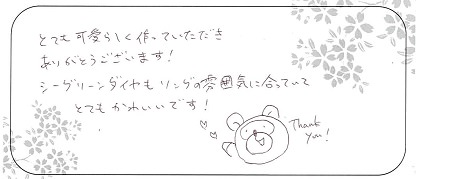 とても可愛らしく作っていただき
ありがとうございます!
シーグリーンダイヤもリングの雰囲気に合っていて
とてもかわいいです!
Thank
you!